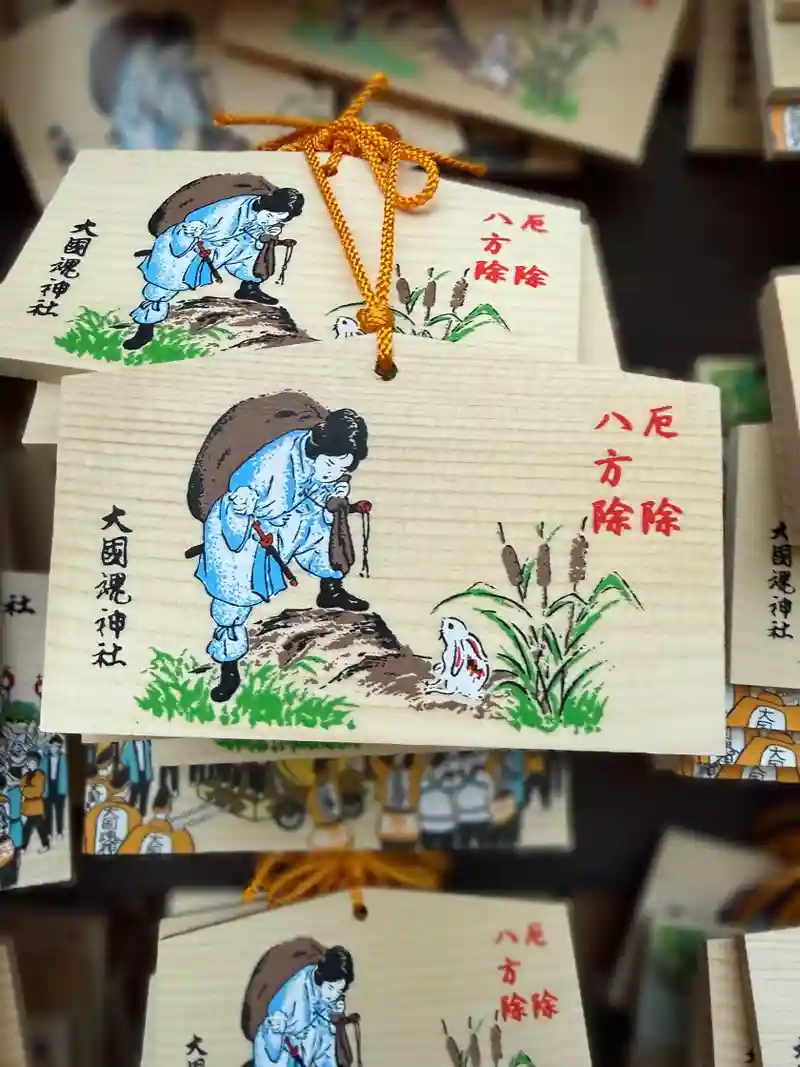 厄除
八方除
大國魂神社
厄除
八方除
大國魂神社
大國魂神社
社
大國魂神
大
大
厄除
八方除
大國